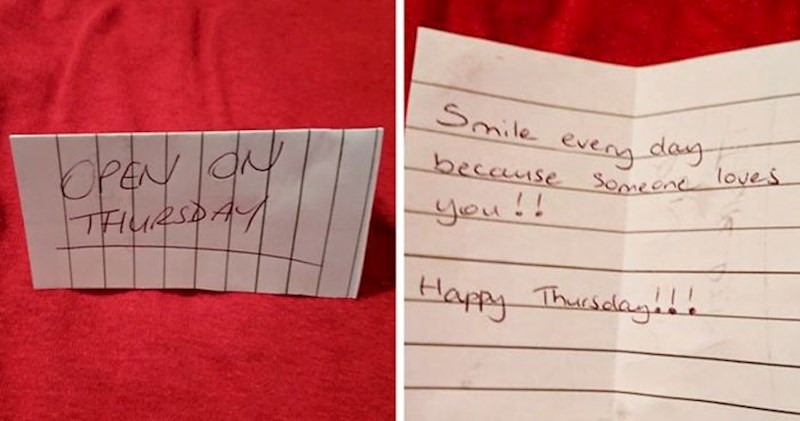 OPEN ON
THURSDAY
Smile every day
because someone loves
you!!
Happy Thursday!!!